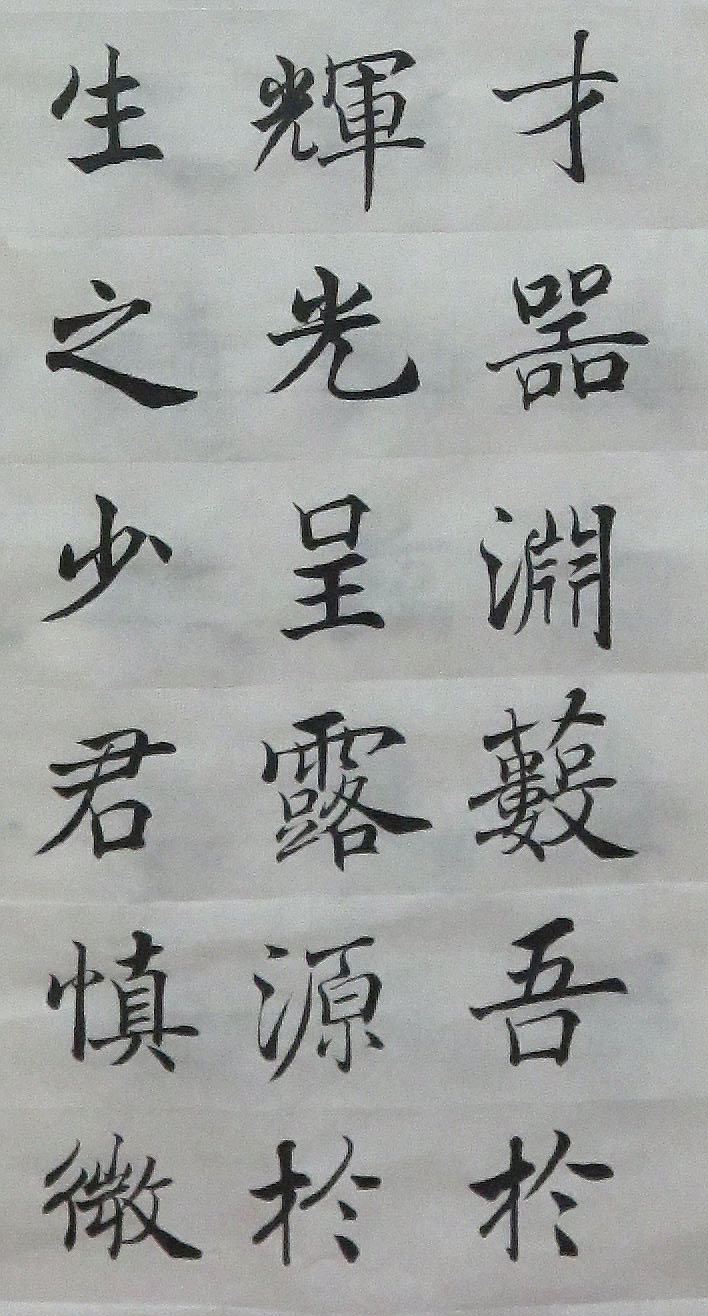 才器淵藪吾於
輝光呈露源於
生之少君慎微